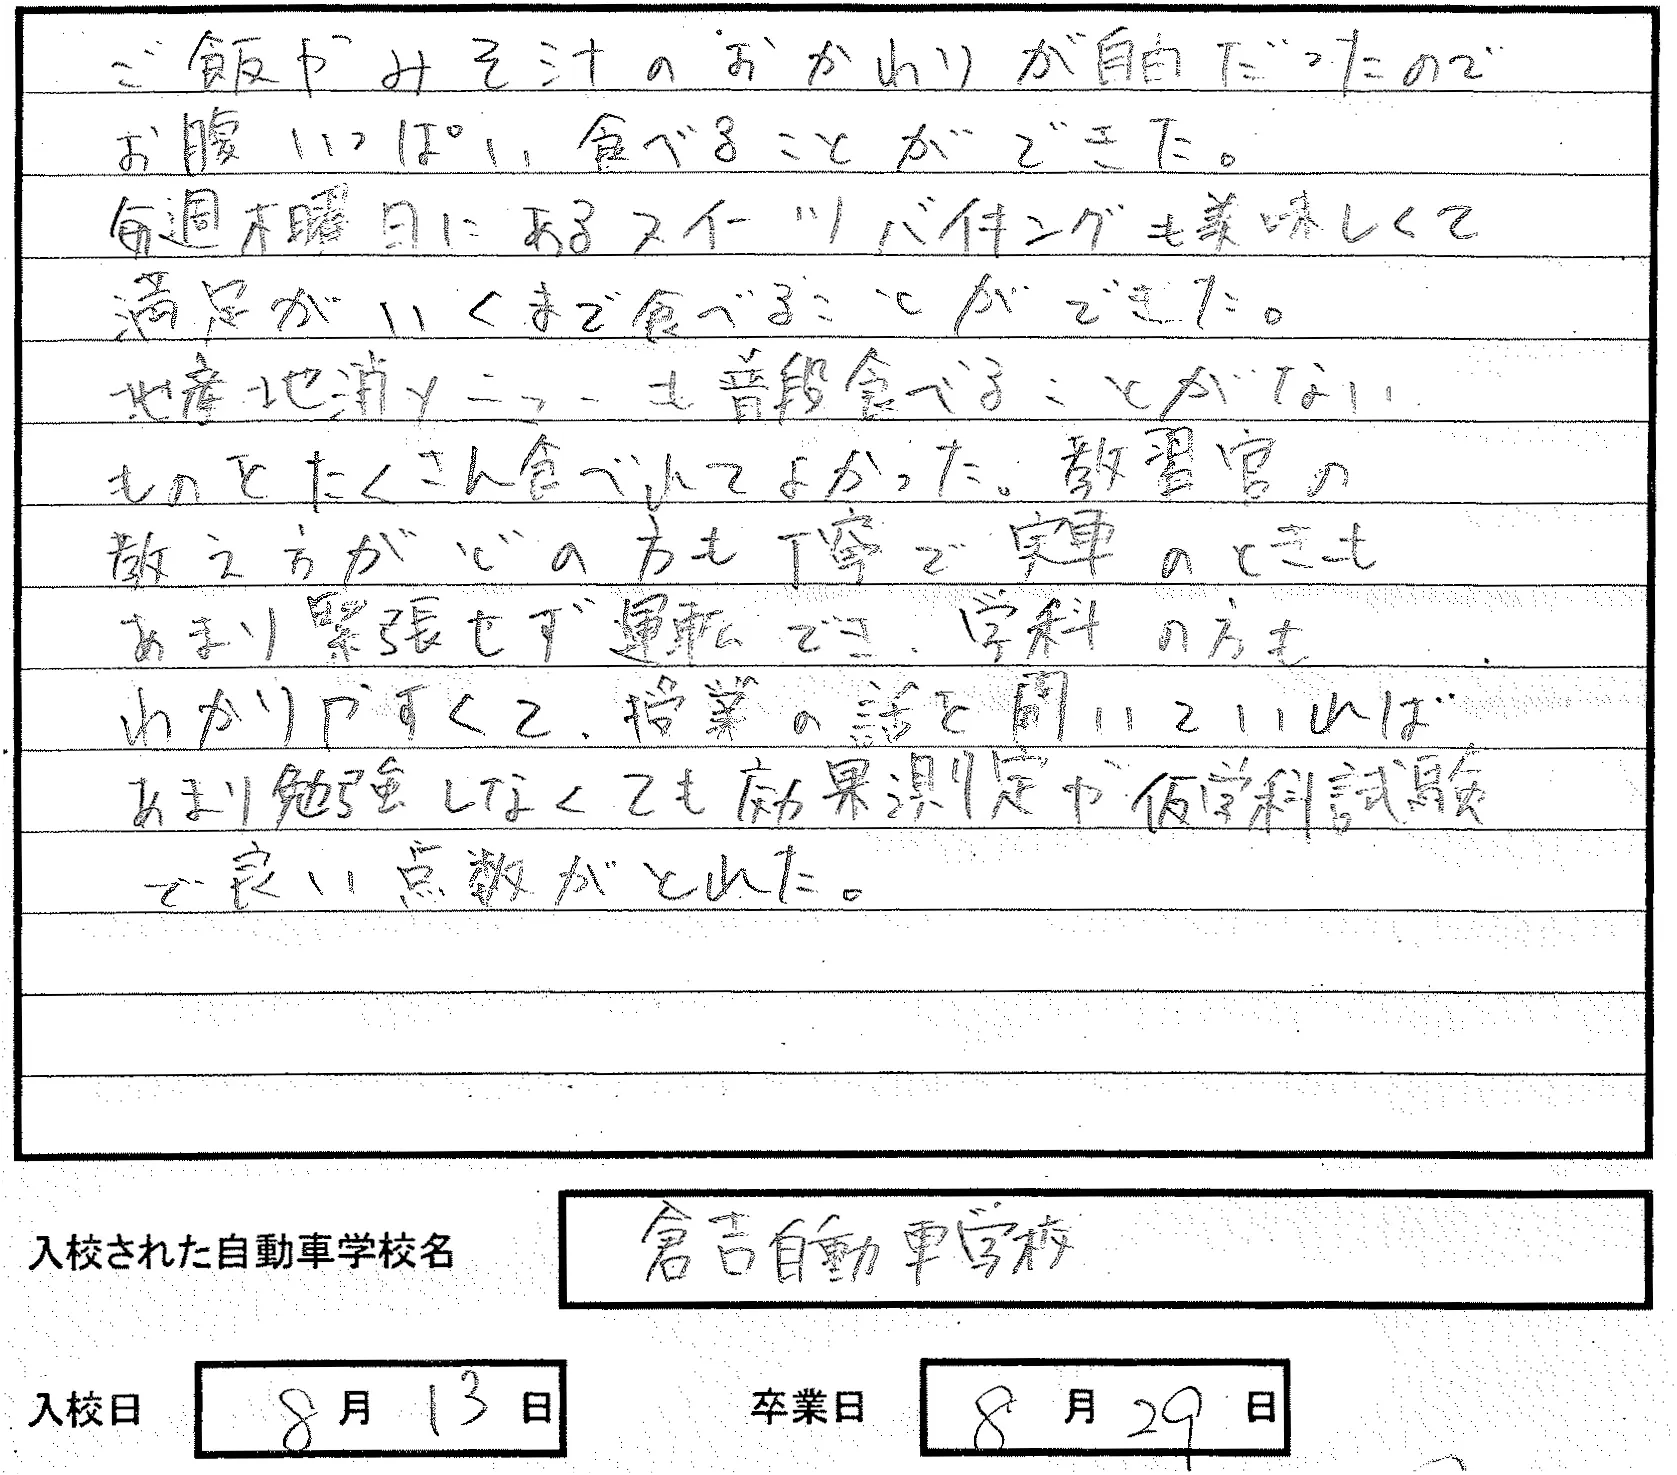 ご飯やみそ汁のおかわりが自由だったので
お腹いっぱい食べることができた。
毎週木曜日にあるスイーツバイキングも美味しくて
満足がいくまで食べることができた。
地産地消メニューも普段食べることがない
ものをたくさん食べれてよかった。教習官の
教え方がどの方も丁寧で実車のときも
あまり緊張せず運転でき、学科の方も
わかりやすくて、授業の話を聞いていれば
あまり勉強しなくても効果測定や仮学科試験
で良い点数がとれた。
入校された自動車学校名 倉吉自動車学校
入校日 8月13日 卒業日 8月29日